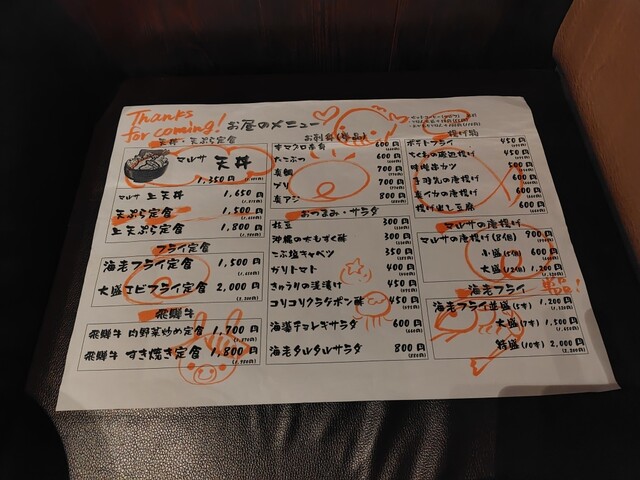 Thanks
for coming! お昼のメニュー
天丼・天ぷら定食
マルサ 天丼
1,350円
マルサ 上天丼 1,650円
天ぷら定食 1,500円
上天ぷら定食 1,800円
フライ定食
海老フライ定食 1,500円
大盛エビフライ定食 2,000円
飛騨牛
飛騨牛 肉野菜炒め定食 1,700円
飛騨牛 すき焼き定食 1,800円
お刺身(単品)
キマグロ赤身 600円
たこぶつ 600円
真鯛 700円
ブリ 700円
真アジ 800円
おつまみ・サラダ
枝豆 300円
沖縄の糸もずく酢 300円
こぶ塩キャベツ 350円
ガリトマト 400円
きゅうりの浅漬け 450円
コリコリクラゲポン酢 450円
海藻チョレギサラダ 600円
海老タルタルサラダ 800円
揚げ物
ポテトフライ 450円
ちくわの磯辺揚げ 450円
味噌串カツ 500円
手羽先の唐揚げ 500円
真イカの唐揚げ 600円
揚げ出し豆腐 600円
マルサの唐揚げ
マルサの唐揚げ(8個) 900円
小盛(5個) 600円
大盛(12個) 1,200円
海老フライ
海老フライ並盛(5本) 1,200円
大盛(7本) 1,500円
特盛(10本) 2,000円